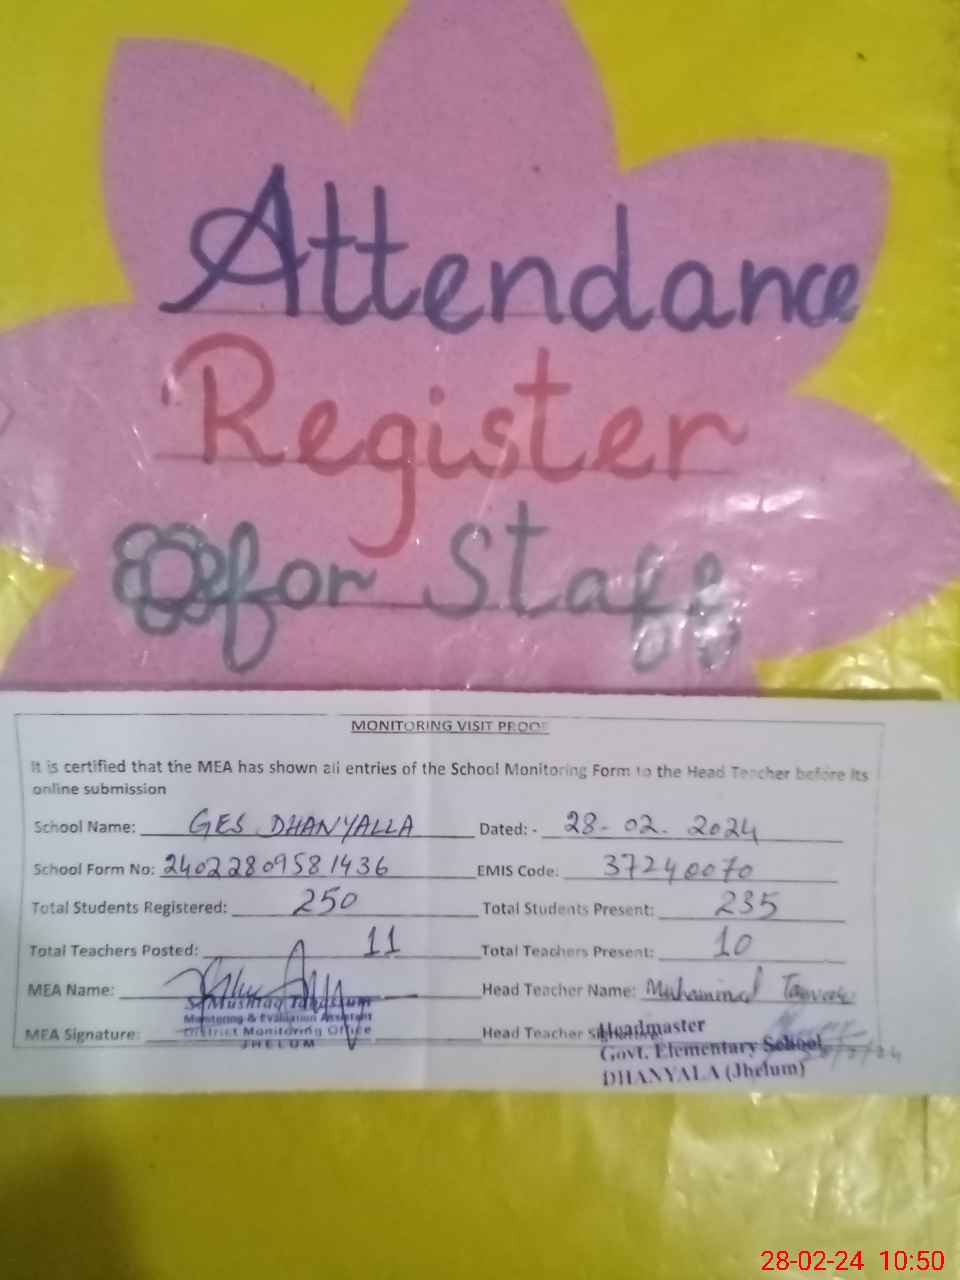 Attendance
Register
for Staff
MONITORING VISIT PROOF
It is certified that the MEA has shown all entries of the School Monitoring Form to the Head Teacher before its
online submission
School Name: GES DHANYALLA Dated: - 28-02-2024
School Form No: 24022809581436 EMIS Code: 37240070
Total Students Registered: 250 Total Students Present: 235
Total Teachers Posted: 11 Total Teachers Present: 10
MEA Name: Head Teacher Name: Muhammad
S. Mushtaq Tabassum
Monitoring & Evaluation Assistant
MEA Signature: District Monitoring Office Head Teacher Signature:
JHELUM
Headmaster
Govt. Elementary School
DHANYALA (Jhelum)
28-02-24 10:50